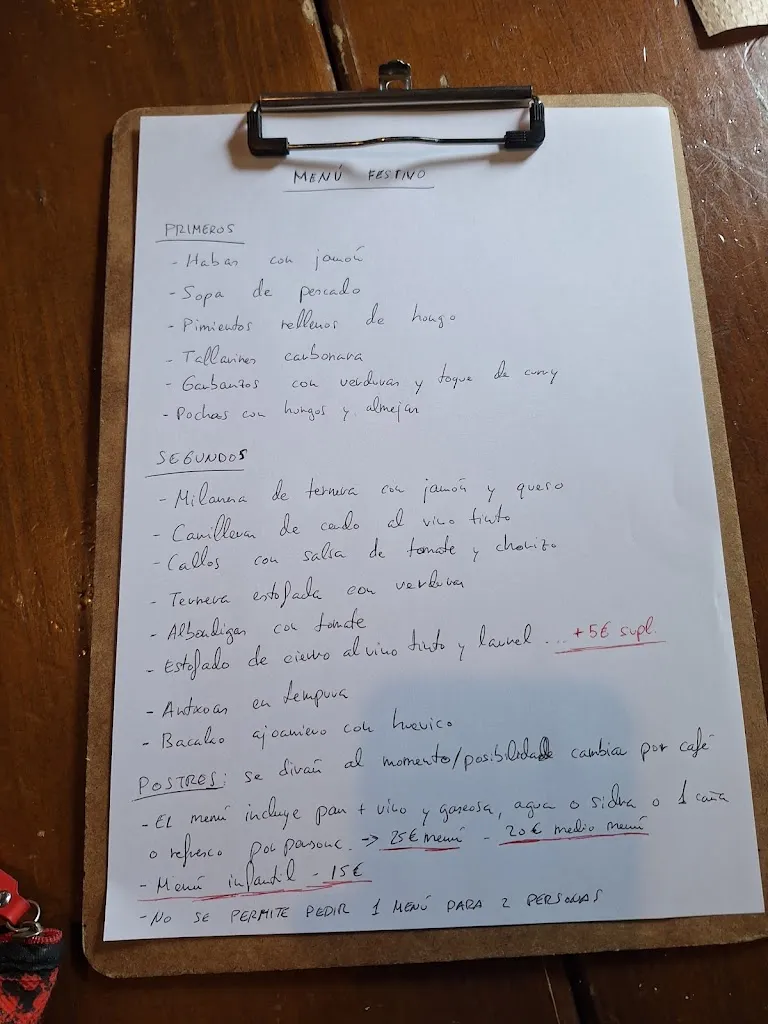 MENÚ FESTIVO
PRIMEROS
- Habas con jamón
- Sopa de pescado
- Pimientos rellenos de hongo
- Tallarines carbonara
- Garbanzos con verduras y toque de curry
- Pochas con hongos y almejas
SEGUNDOS
- Milanesa de ternera con jamón y queso
- Carrilleras de cerdo al vino tinto
- Callos con salsa de tomate y chorizo
- Ternera estofada con verduras
- Albondigas con tomate
- Estofado de ciervo al vino tinto y laurel ... + 5€ supl.
- Antxoas en tempura
- Bacalao ajoarriero con huevico
POSTRES: se dirán al momento/posibilidad de cambiar por café
- EL menú incluye pan + vino y gaseosa, agua o sidra o 1 caña
o refresco por persona. → 25€ menú - 20€ medio menú
- Menú infantil - 15€
- NO SE PERMITE PEDIR 1 MENÚ PARA 2 PERSONAS